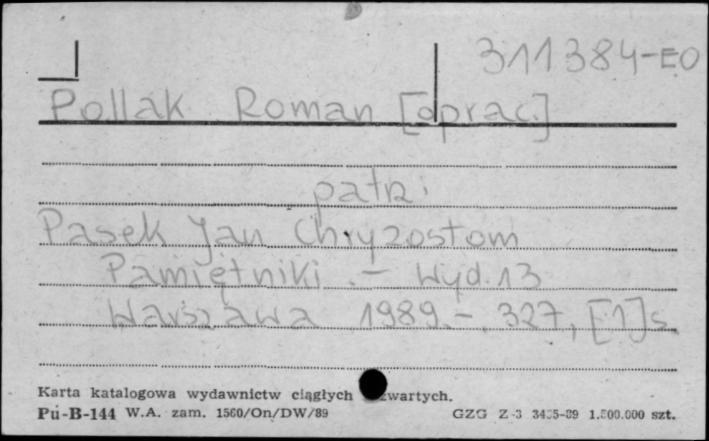 311384-EO
Pollak Roman [oprac.]
patrz:
Pasek Jan Chryzostom
Pamiętniki. - Wyd. 13
Warszawa 1989. - 327, [1] s.
Karta katalogowa wydawnictw ciągłych zwartych.
Pu-B-144 W.A. zam. 1560/On/DW/89 GZG Z-3 3435-89 1.500.000 szt.